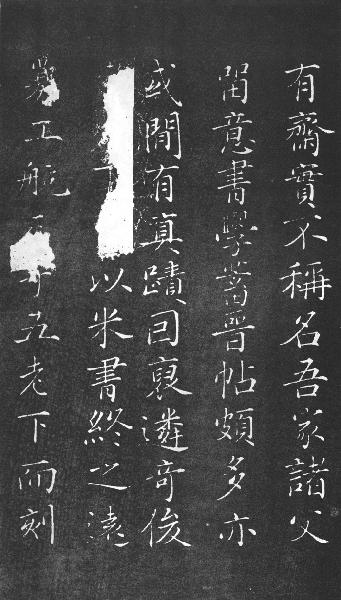 有齋實不稱名吾家諸父
留意書學蓄晉帖頗多亦
或間有真蹟因裒遴奇俊
以米書終之遠
募工航 五老下而刻